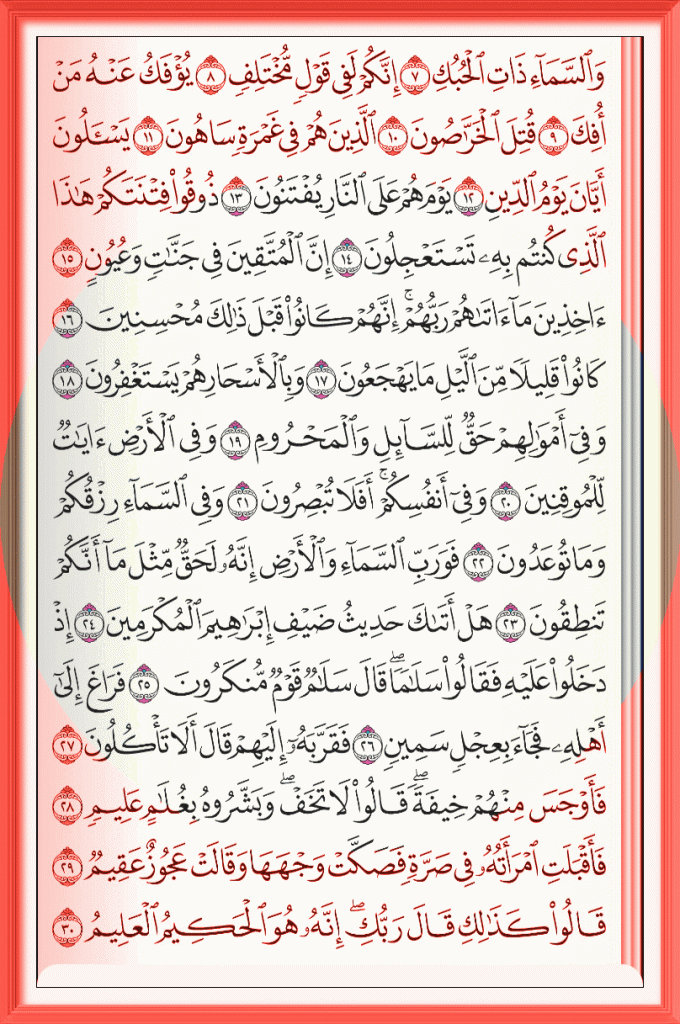 وَٱلسَّمَآءِ ذَاتِ ٱلۡحُبُكِ ٧ إِنَّكُمۡ لَفِي قَوۡلٖ مُّخۡتَلِفٖ ٨ يُؤۡفَكُ عَنۡهُ مَنۡ
أُفِكَ ٩ قُتِلَ ٱلۡخَرَّٰصُونَ ١٠ ٱلَّذِينَ هُمۡ فِي غَمۡرَةٖ سَاهُونَ ١١ يَسۡـَٔلُونَ
أَيَّانَ يَوۡمُ ٱلدِّينِ ١٢ يَوۡمَ هُمۡ عَلَى ٱلنَّارِ يُفۡتَنُونَ ١٣ ذُوقُواْ فِتۡنَتَكُمۡ هَٰذَا
ٱلَّذِي كُنتُم بِهِۦ تَسۡتَعۡجِلُونَ ١٤ إِنَّ ٱلۡمُتَّقِينَ فِي جَنَّٰتٖ وَعُيُونٍ ١٥
ءَاخِذِينَ مَآ ءَاتَىٰهُمۡ رَبُّهُمۡۚ إِنَّهُمۡ كَانُواْ قَبۡلَ ذَٰلِكَ مُحۡسِنِينَ ١٦
كَانُواْ قَلِيلٗا مِّنَ ٱلَّيۡلِ مَا يَهۡجَعُونَ ١٧ وَبِٱلۡأَسۡحَارِ هُمۡ يَسۡتَغۡفِرُونَ ١٨
وَفِيٓ أَمۡوَٰلِهِمۡ حَقّٞ لِّلسَّآئِلِ وَٱلۡمَحۡرُومِ ١٩ وَفِي ٱلۡأَرۡضِ ءَايَٰتٞ
لِّلۡمُوقِنِينَ ٢٠ وَفِيٓ أَنفُسِكُمۡۚ أَفَلَا تُبۡصِرُونَ ٢١ وَفِي ٱلسَّمَآءِ رِزۡقُكُمۡ
وَمَا تُوعَدُونَ ٢٢ فَوَرَبِّ ٱلسَّمَآءِ وَٱلۡأَرۡضِ إِنَّهُۥ لَحَقّٞ مِّثۡلَ مَآ أَنَّكُمۡ
تَنطِقُونَ ٢٣ هَلۡ أَتَىٰكَ حَدِيثُ ضَيۡفِ إِبۡرَٰهِيمَ ٱلۡمُكۡرَمِينَ ٢٤ إِذۡ
دَخَلُواْ عَلَيۡهِ فَقَالُواْ سَلَٰمٗاۖ قَالَ سَلَٰمٞ قَوۡمٞ مُّنكَرُونَ ٢٥ فَرَاغَ إِلَىٰٓ
أَهۡلِهِۦ فَجَآءَ بِعِجۡلٖ سَمِينٖ ٢٦ فَقَرَّبَهُۥٓ إِلَيۡهِمۡ قَالَ أَلَا تَأۡكُلُونَ ٢٧
فَأَوۡجَسَ مِنۡهُمۡ خِيفَةٗۖ قَالُواْ لَا تَخَفۡۖ وَبَشَّرُوهُ بِغُلَٰمٍ عَلِيمٖ ٢٨
فَأَقۡبَلَتِ ٱمۡرَأَتُهُۥ فِي صَرَّةٖ فَصَكَّتۡ وَجۡهَهَا وَقَالَتۡ عَجُوزٌ عَقِيمٞ ٢٩
قَالُواْ كَذَٰلِكِ قَالَ رَبُّكِۖ إِنَّهُۥ هُوَ ٱلۡحَكِيمُ ٱلۡعَلِيمُ ٣٠